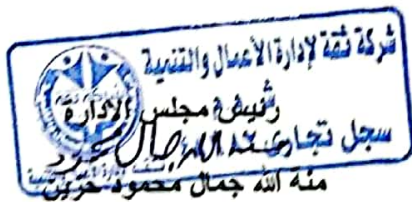 شركة ثقة لإدارة الأعمال والتنمية
رئيس مجلس الادارة
سجل تجارى
منة الله جمال محمود حزين